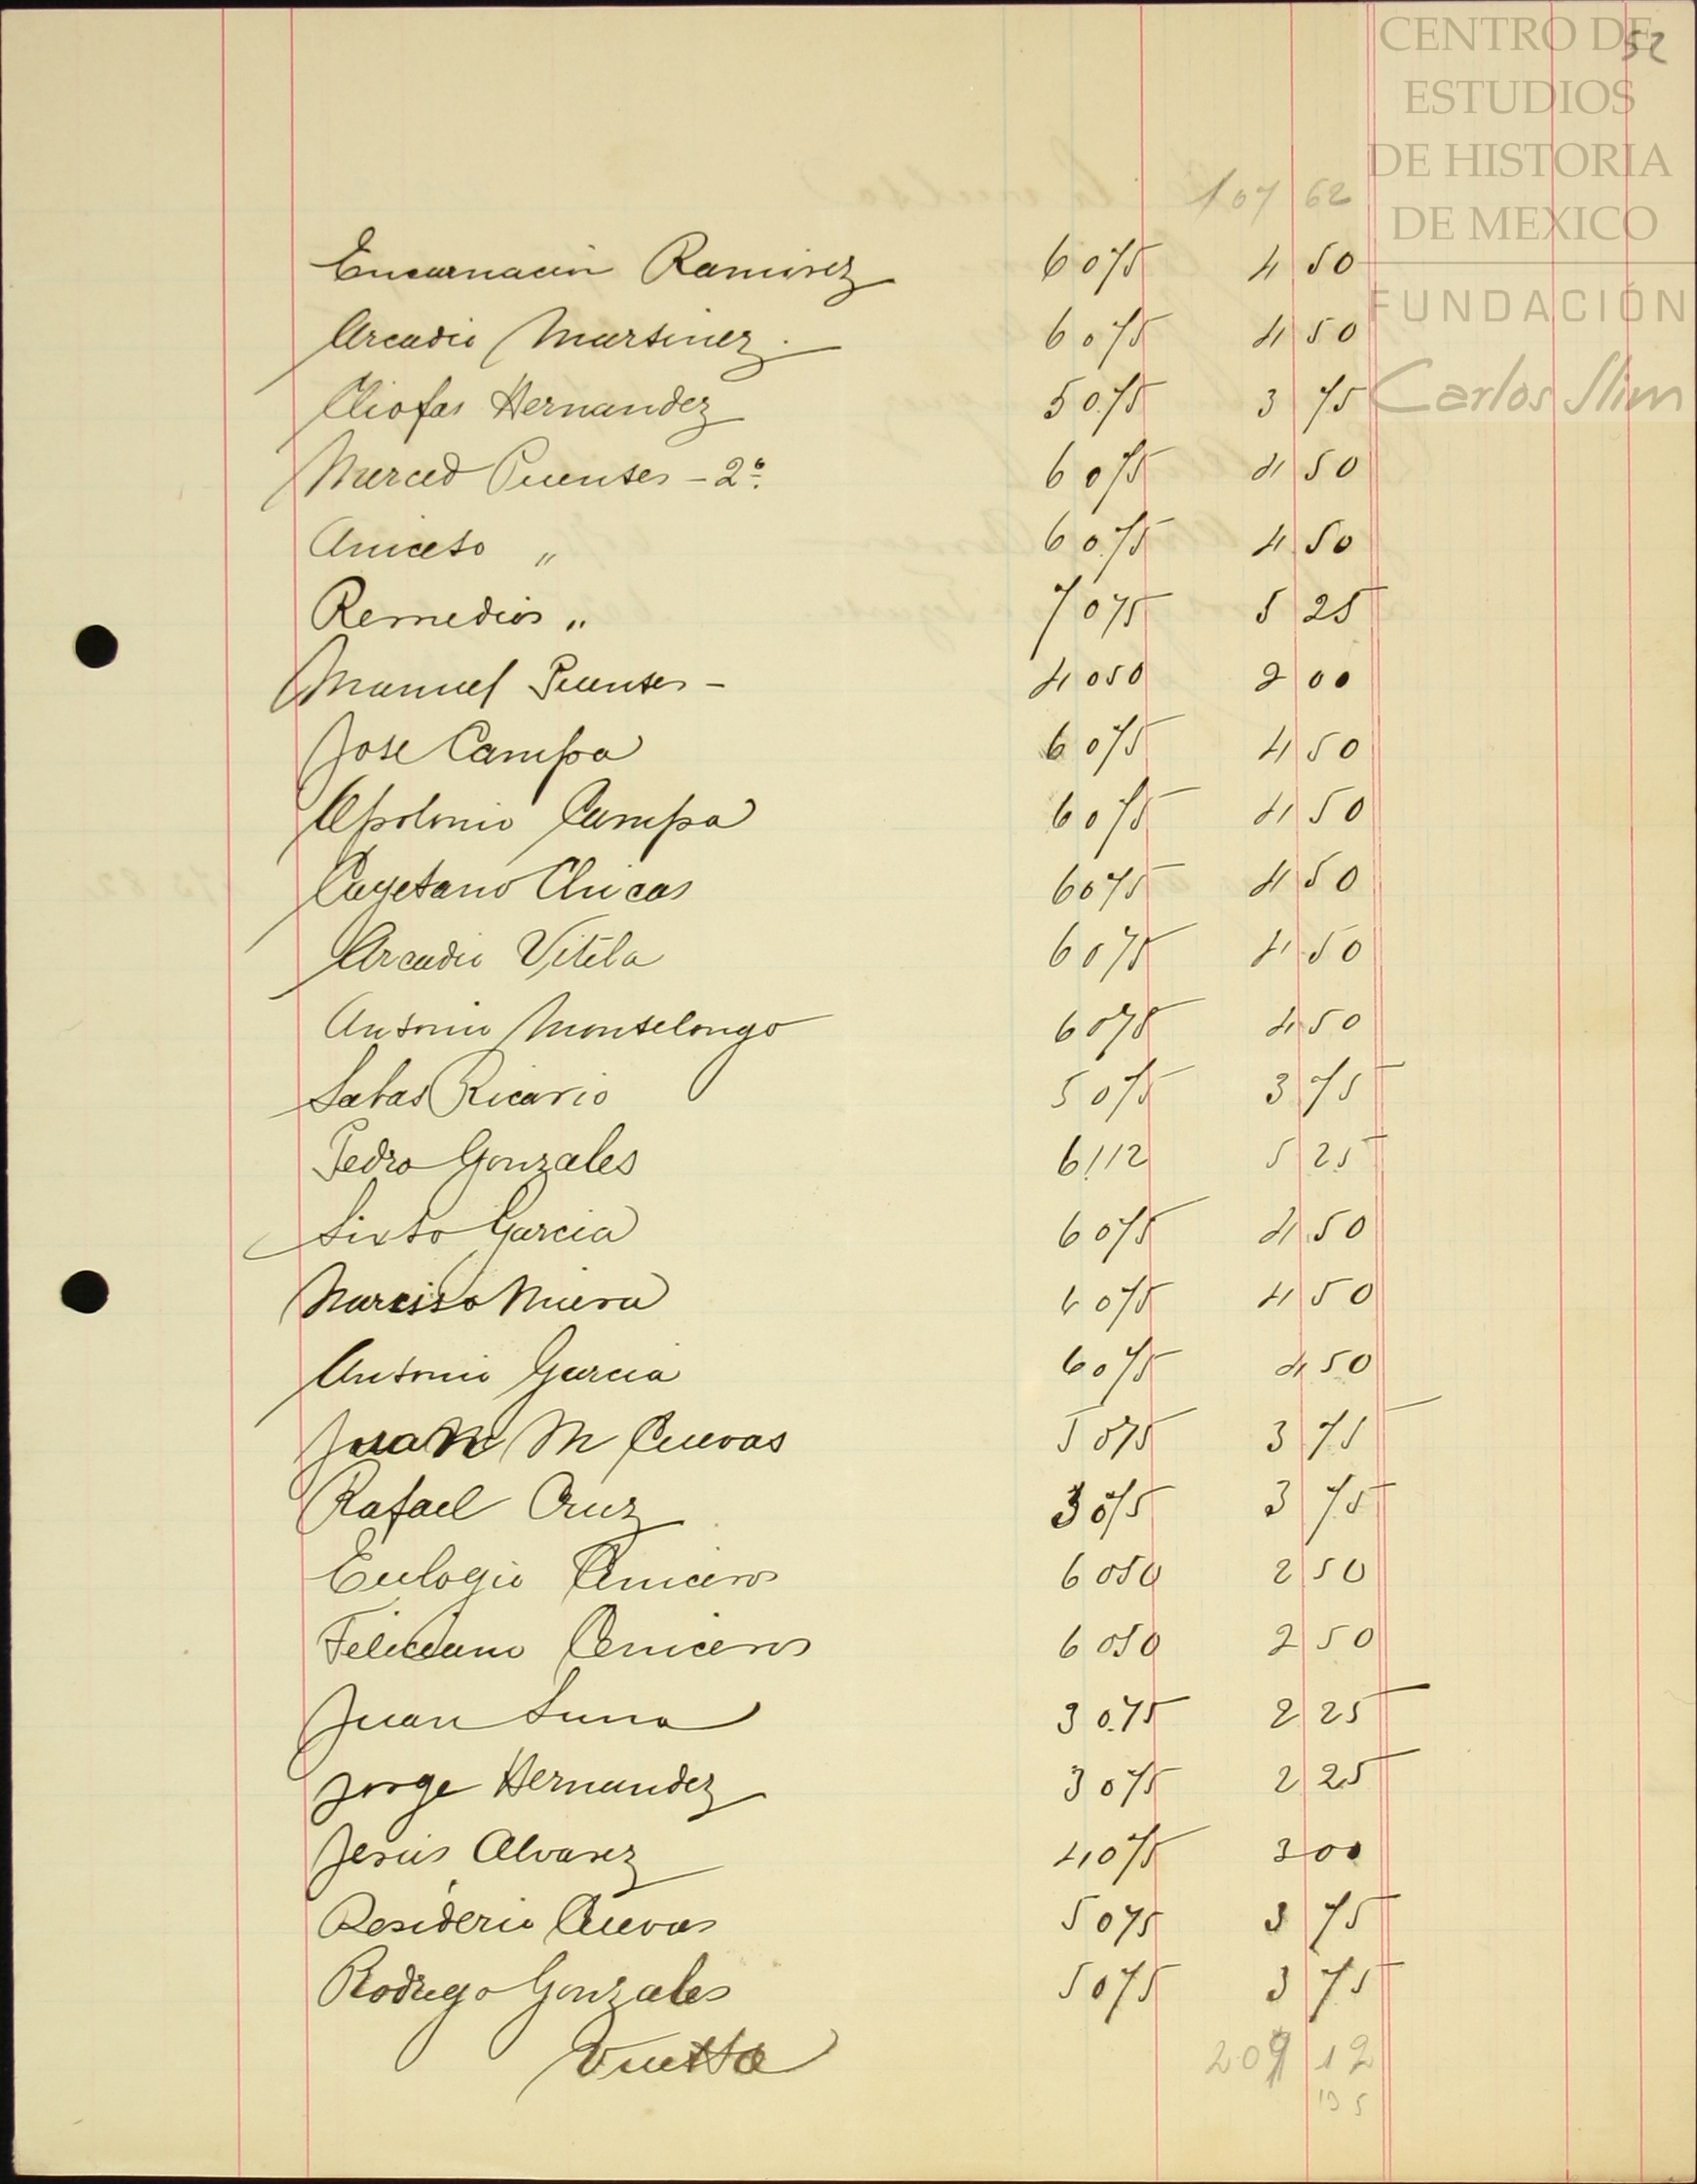 CENTRO DE
ESTUDIOS
DE HISTORIA
DE MEXICO
FUNDACIÓN
Carlos Slim
52
107 62
Encarnacion Ramirez 6 075 4 50
Arcadio Martinez. 6 075 4 50
Cliofas Hernandez 5 0.75 3 75
Merced Puentes - 2º. 6 075 4 50
Aniceto " 6 0.75 4 50
Remedios " 7 075 5 25
Manuel Puentes - 4 050 2 00
Jose Campa 6 075 4 50
Apolonio Campa 6 075 4 50
Cayetano Chicas 6 075 4 50
Arcadio Vitela 6 075 4 50
Antonio Montelongo 6 075 4 50
Sabas Ricario 5 075 3 75
Pedro Gonzales 6 112 5 25
Sixto Garcia 6 075 4 50
Narciso Miera 6 075 4 50
Antonio Garcia 6 075 4 50
Juan M Cuevas 5 075 3 75
Rafael Cruz 3 075 3 75
Eulogio Ceniceros 6 050 2 50
Feliciano Ceniceros 6 050 2 50
Juan Luna 3 0.75 2 25
Jorge Hernandez 3 075 2 25
Jesús Alvarez 4 075 3 00
Desiderio Cuevas 5 075 3 75
Rodrigo Gonzales 5 075 3 75
Vuelta 209 12